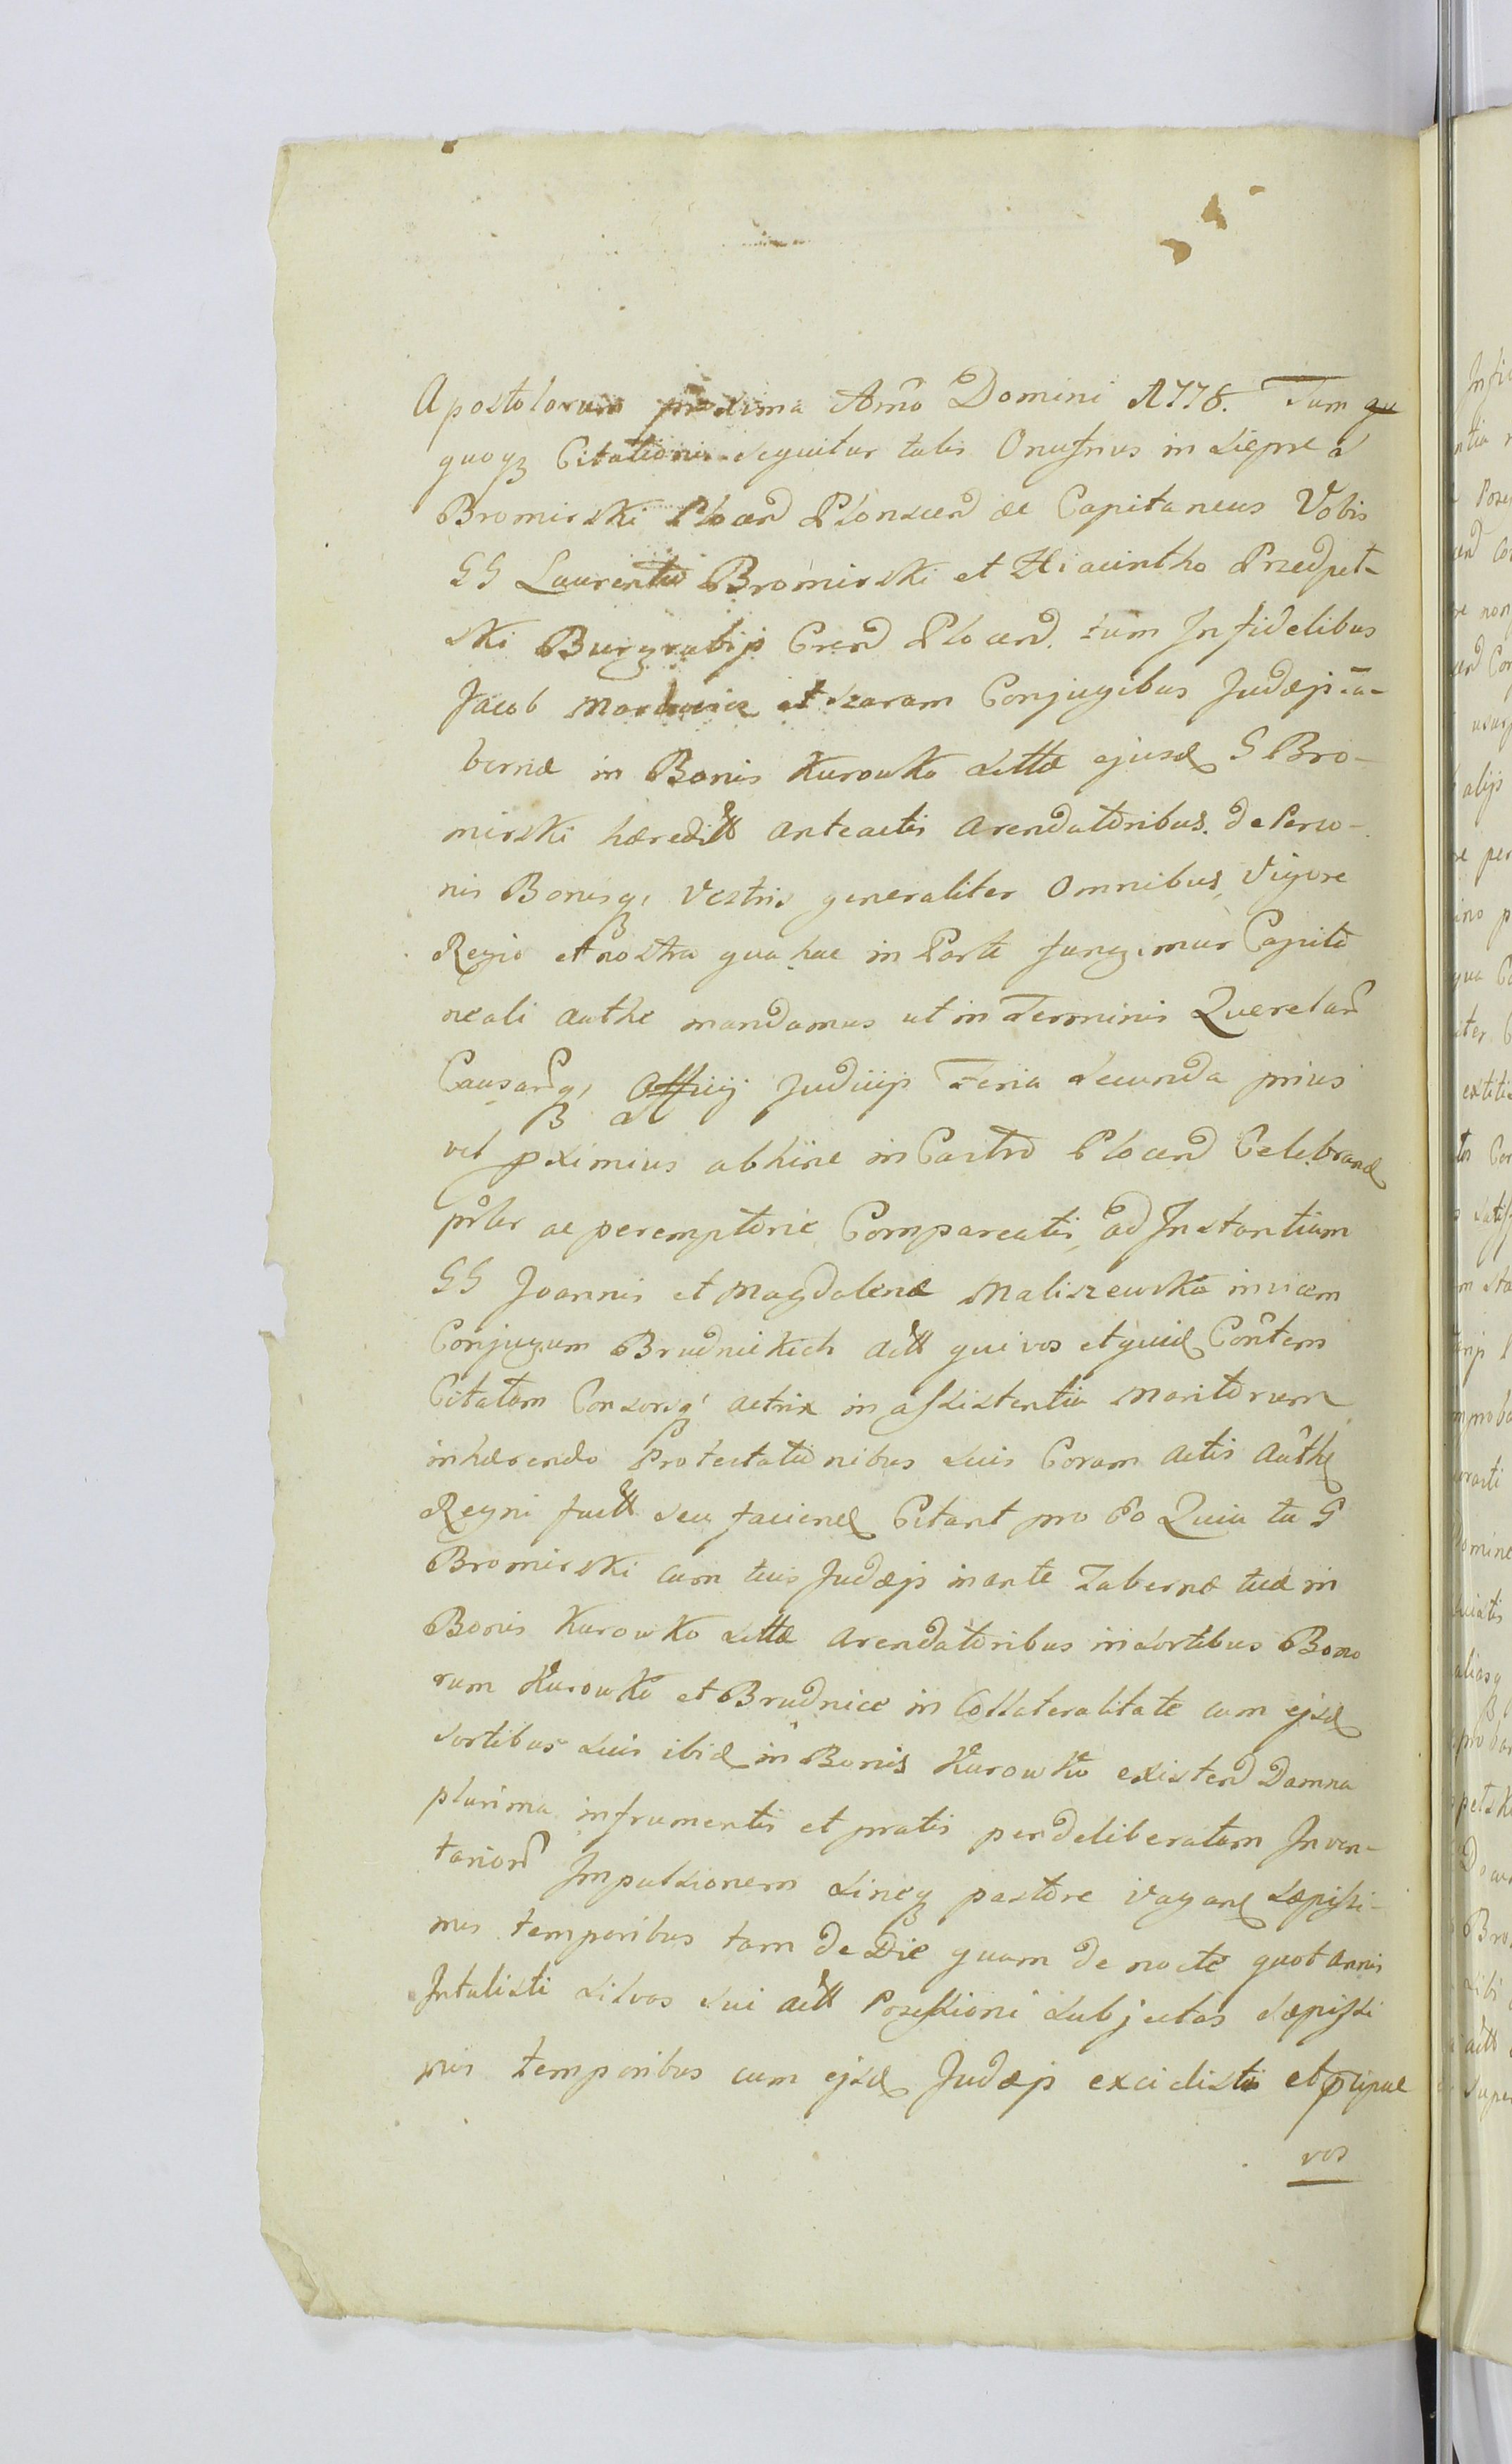 Apostolorum proxima Anno Domini 1778. Tum qu
quoqz Citationis sequitur talis Onufrius in Siepre a
Bromirski Plocen Plonscen &c Capitaneus Vobis
GG Laurentio Bromirski et Hiacintho Przedpet-
ski Burgrabijs Cren Plocen. tum Infidelibus
Jacob et Szaram Conjugibus Judæis Ta-
bernæ in Bonis Kurowko Littæ ejusd G Bro-
mirski hæreditt anteactis arendatoribus. de Perso-
nis Bonisq, Vestris generaliter Omnibus, Vigore
Regio et nostra qua hac in Parte fungimur Capita
neali authe mandamus ut in Terminis Querelar
Causarq, Officij Judicij Feria Secunda prius
vel pximius abhinc in Castro Plocen Celebrand
prlr ac peremptorie Compareatis, ad Instantiam
GG Joannis et Magdalenæ Maliszewska invicem
Conjugum Brudnickich actt qui vos et quid Contem
Citatam Consorsq, actrix in assistentia Maritorum
inhærendo Protestationibus suis Coram actis auth
Regni factt seu faciend Citant pro Eo Quia tu G
Bromirski cum tuis Judæis inante Tabernæ tuæ in
Bonis Kurowko Littæ arendatoribus in Sortibus Bono
rum Kurowko et Brudnice in Collateralitate cum ejsd
Sortibus Suis ibid in Bonis Kurowko existen Damna
plurima in frumentis et pratis per deliberatam Inven-
tarior Impulsionem Sineq pastore vagand Sæpissi-
mis temporibus tam de Die quam de nocte quot annis
Intulisti Silvas sui actt Possessioni Subjectas Sæpissi
mis temporibus cum ejsd Judæis excidisti et
vos